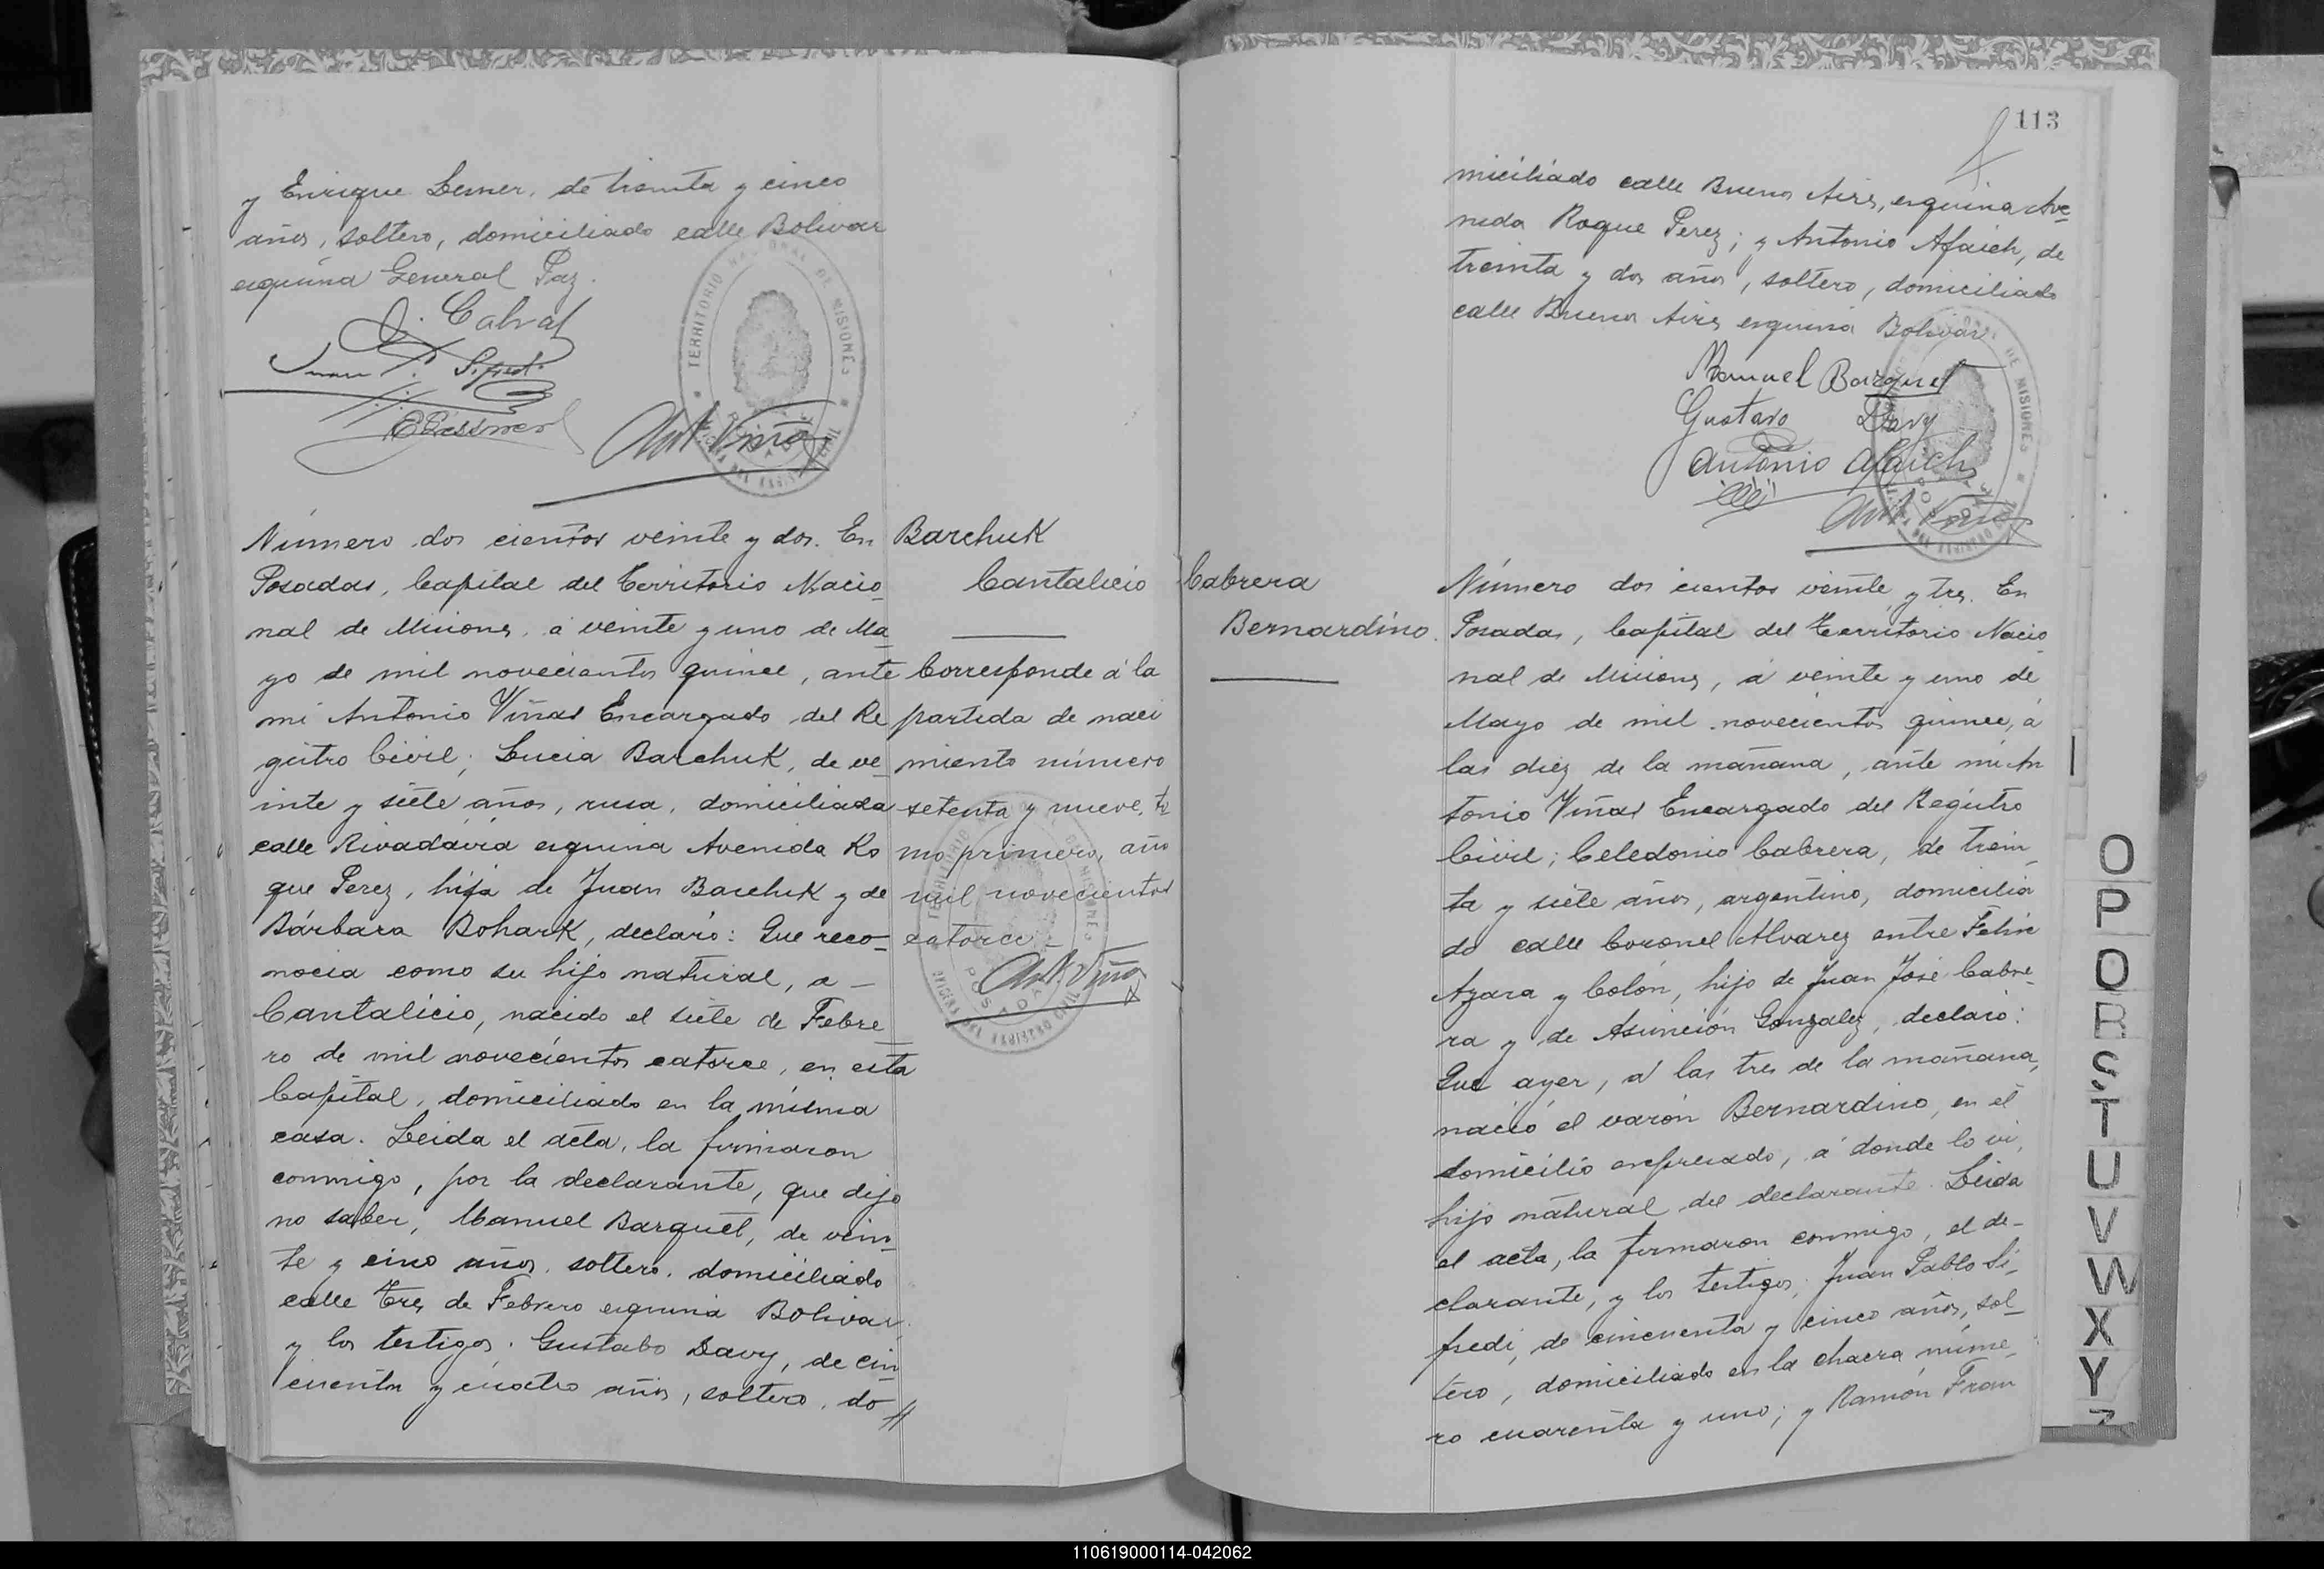 y Enrique Lesner, de treinta y cinco
años, soltero, domiciliado calle Bolivar
esquina General Paz.
Cabral
Ant. Viñas
TERRITORIO NACIONAL DE MISIONES
Número dos cientos veinte y dos. En
Posadas, Capital del Territorio Nacio_
nal de Misiones, á veinte y uno de Ma_
yo de mil novecientos quince, ante
mi Antonio Viñas Encargado del Re
gistro Civil; Lucia Barchuk, de ve_
inte y siete años, rusa, domiciliada
calle Rivadavia esquina Avenida Ro
que Perez, hija de Juan Barchuk y de
Bárbara Bohark, declaró: Que reco_
nocia como su hijo natural, a _
Cantalicio, nacido el siete de Febre_
ro de mil novecientos catorce, en esta
Capital, domiciliado en la misma
casa. Leida el acta, la firmaron
conmigo, por la declarante, que dijo
no saber, Manuel Barquet, de vein_
te y cinco años, soltero, domiciliado
calle Tres de Febrero esquina Bolivar,
y los testigos: Gustabo Davy, de cin_
cuenta y cuatro años, soltero, do //
Barchuk
Cantalicio
Corresponde á la
partida de naci
miento número
setenta y nueve, to
mo primero, año
mil novecientos
catorce _
Ant. Viñas
113
miciliado calle Buenos Aires, esquina Ave_
nida Roque Perez; y Antonio Afaich, de
treinta y dos años, soltero, domiciliado
calle Buenos Aires esquina Bolivar.
Manuel Barquet
Gustavo Davy
Antonio Afaich
Ant. Viñas
Cabrera
Bernardino.
Número dos cientos veinte y tres. En
Posadas, Capital del Territorio Nacio_
nal de Misiones, á veinte y uno de
Mayo de mil novecientos quince, á
las diez de la mañana, ante mi An
tonio Viñas Encargado del Registro
Civil; Celedonio Cabrera, de trein_
ta y siete años, argentino, domicilia
do calle Coronel Alvarez entre Felix
Azara y Colón, hijo de Juan José Cabre_
ra y de Asunción Gonzalez, declaró:
Que ayer, á las tres de la mañana,
nació el varón Bernardino, en el
domicilio expresado, á donde lo vi,
hijo natural del declarante. Leida
el acta, la firmaron conmigo, el de_
clarante, y los testigos; Juan Pablo Si_
fredi, de cincuenta y cinco años, sol_
tero, domiciliado en la chacra núme_
ro cuarenta y uno; y Ramón Fran
O
P
Q
R
S
T
U
V
W
X
Y
Z
110619000114-042062